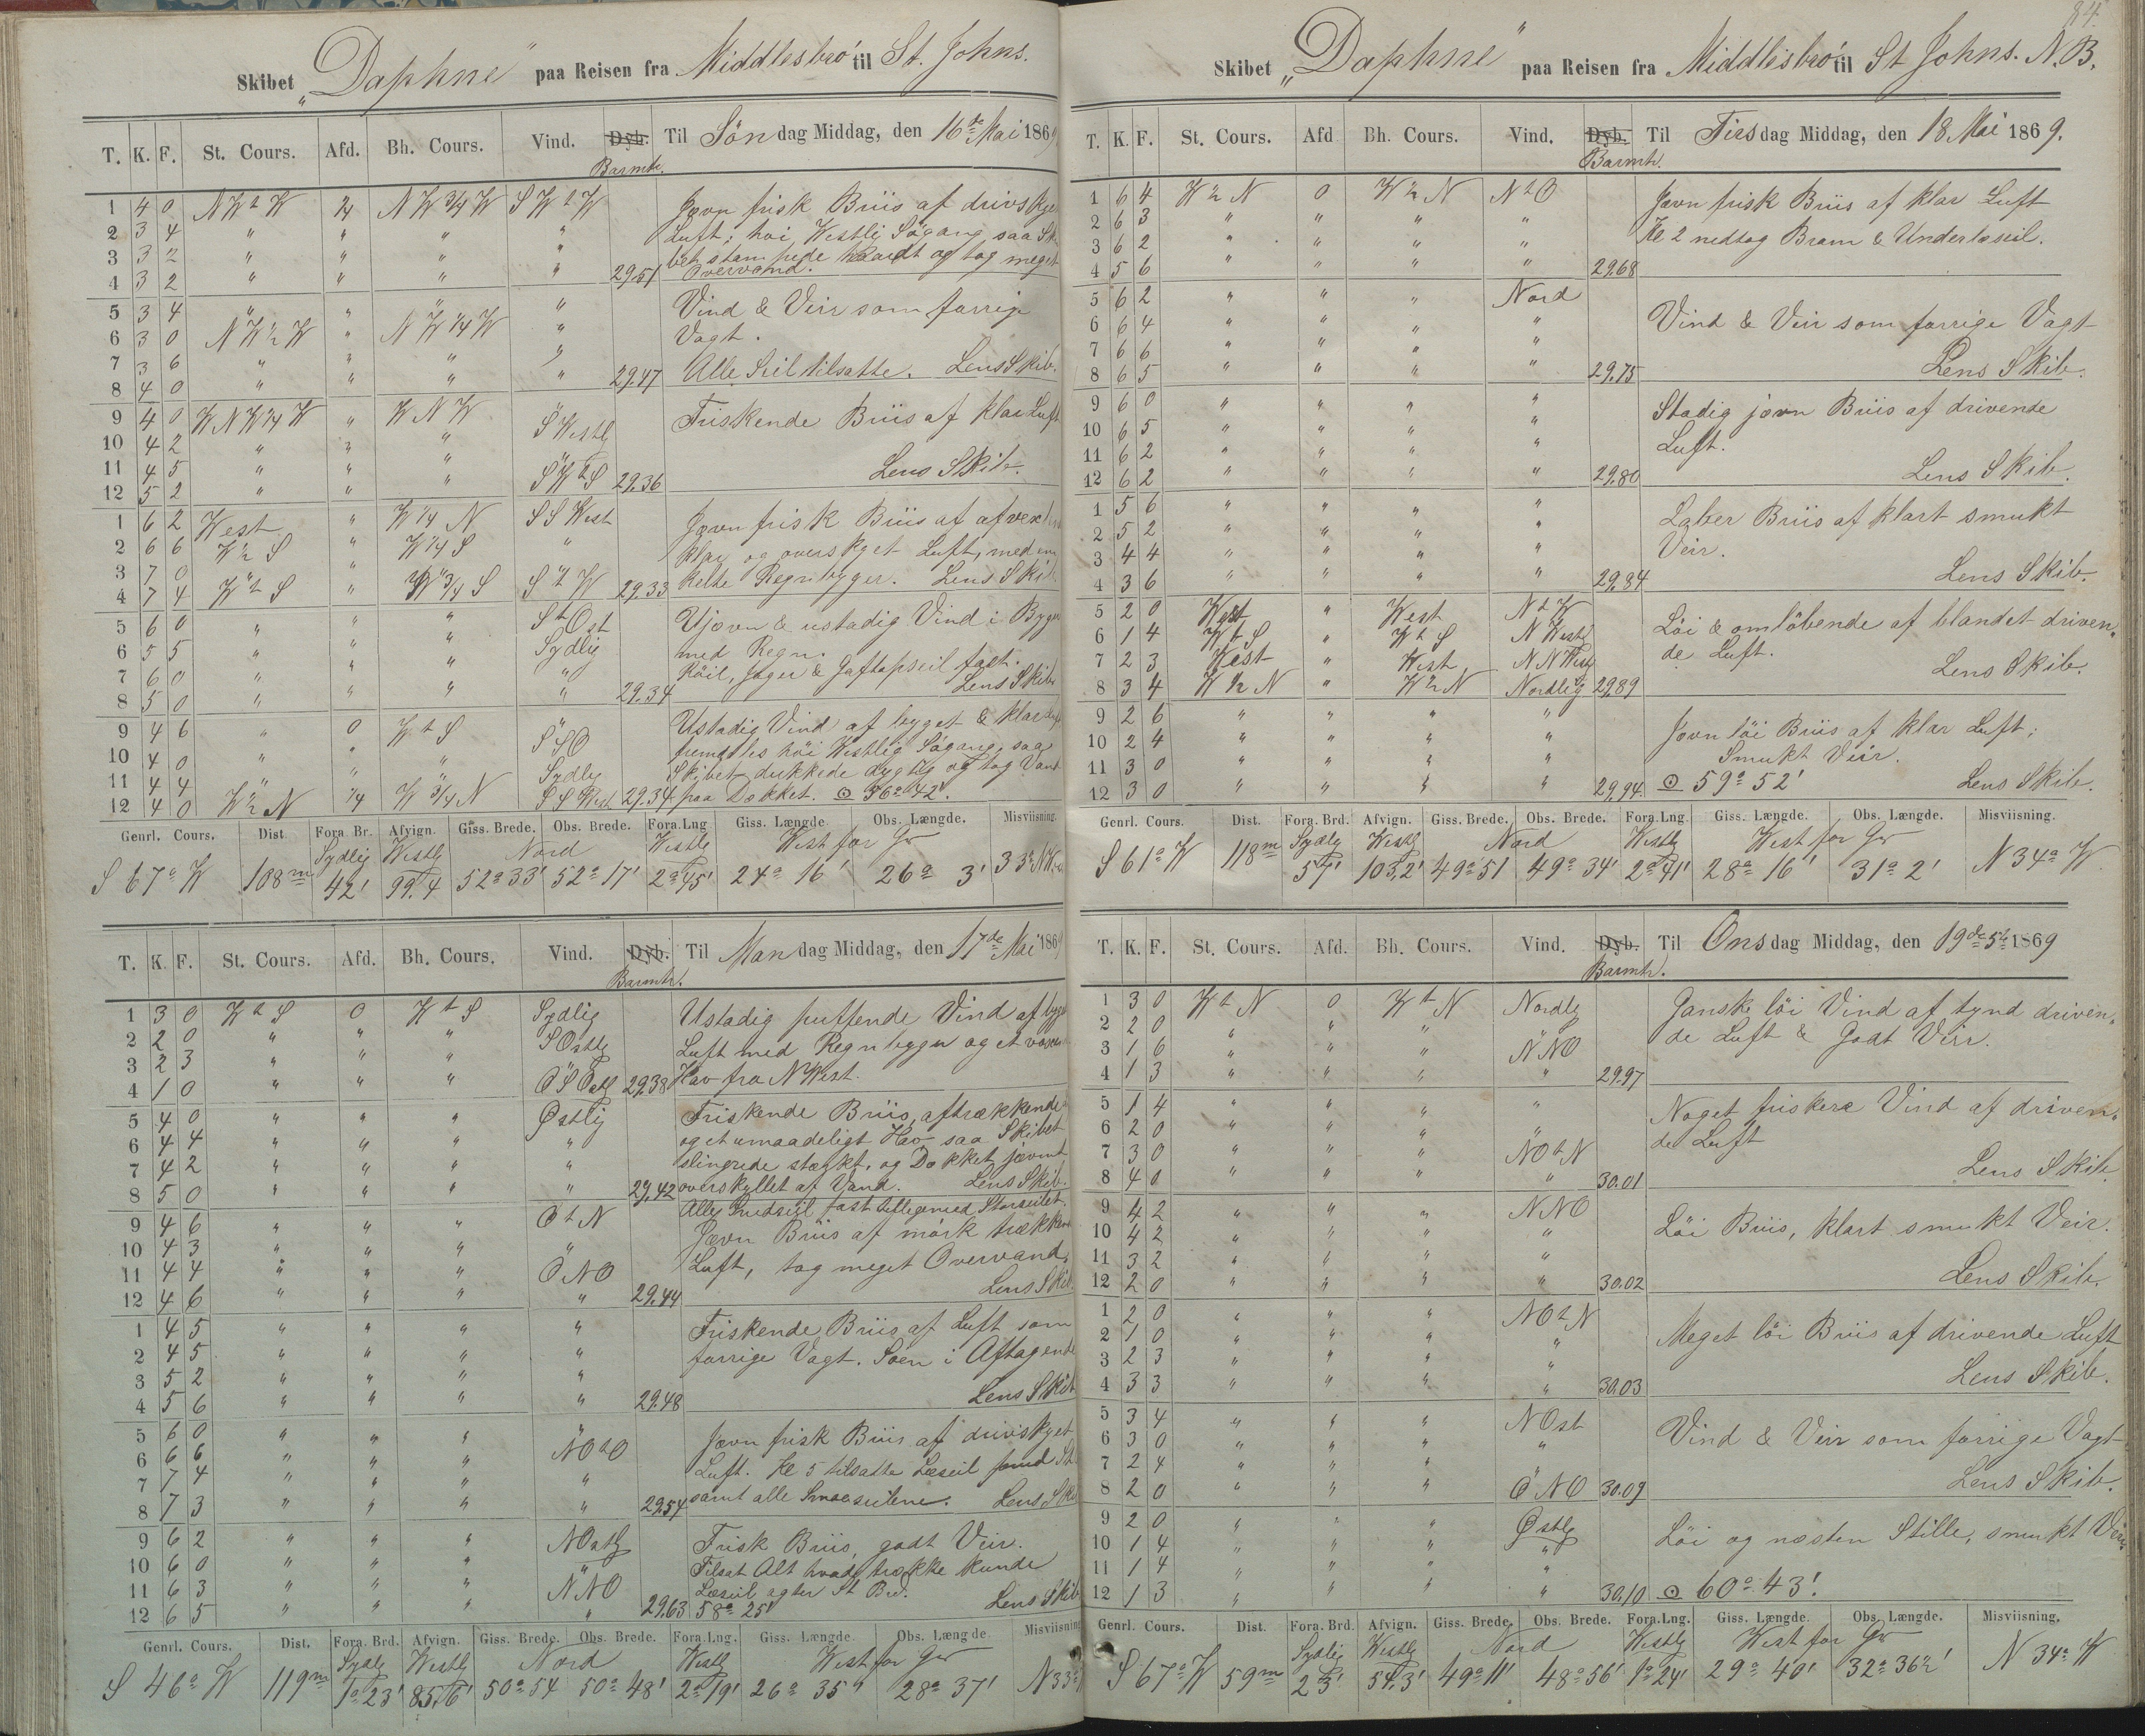 84.
Skibet „Daphne" paa Reisen fra Middlesbro' til St. Johns.
T. K. F. St. Cours. Afd. Bh. Cours. Vind. Dyb. Til Søndag Middag, den 16de Mai 1869
Barmtr.
1 4 0 NWtW 1/4 NW 3/4 W SWtW Jævn frisk Briis af drivskyet
2 3 4 " " " " Luft; høi Westli Søgang, saa Ski
3 3 2 " " " " bet stampede haardt og tog meget
4 3 2 " " " " 29.51 Overvand.
5 3 4 " " " " Vind & Veir som forrige
6 3 0 NW 1/2 W " NW 1/4 W " Vagt.
7 3 6 " " " "
8 4 0 " " " " 29.47 Alle Seil tilsatte. Lens Skib.
9 4 0 WNW 1/4 W " WNW " Friskende Briis af klar Luft
10 4 2 " " " S Westlg
11 4 5 " " " "
12 5 2 " " " SWtS 29.36 Lens Skib.
1 6 2 West " W 1/4 N SSWest Jævn frisk Briis af afvexlen
2 6 6 W 1/2 S " W 1/4 S " klar og overskyet Luft, med en
3 7 0 " " " "
4 7 4 WtS " W 3/4 S StW 29.33 kelte Regnbyger. Lens Skib
5 6 0 " " " StOst Ujævn & ustadig Vind i Byger
6 5 5 " " " Sydlig med Regn.
7 6 0 " " " " Röil, Jager & Gaftopseil fast.
8 5 0 " " " " 29.34 Lens Skib
9 4 6 " 0 WtS " Ustadig Vind af byget & klar Luft
10 4 0 " " " SSO fremdeles höi Westlig Søgang, saa
11 4 4 " " " Sydlg Skibet dukkede dygtig og tog Vand
12 4 0 W 1/2 N 1/4 W 3/4 N SSWest 29.34 paa Dækket. ⊙ 56° 42'.
Genrl. Cours. Dist. Fora. Br. Afvign. Giss. Brede. Obs. Brede. Fora. Lng Giss. Længde Obs. Længde. Misviisning.
Sydlig Westlg Nord Westlg West for Gr
S 67° W 108m 42' 99.4 52° 33' 52° 17' 2° 45' 24° 16' 26° 3' 33°
T. K. F. St. Cours. Afd. Bh. Cours. Vind. Dyb. Til Mandag Middag, den 17de Mai 1869
Barmtr.
1 3 0 WtS 0 WtS Sydlig Ustadig puffende Vind af byget
2 2 0 " " " SOstlg Luft med Regnbyger og et voxen
3 2 3 " " " "
4 1 0 " " " OSOstlg 29.38 Hav fra NWest.
5 4 0 " " " Østlig Friskende Briis, aftrækkende
6 4 4 " " " " og et umaadeligt Hav saa Skibet
7 4 2 " " " " slingrede stærkt, og Dækket jævnt
8 5 0 " " " " 29.42 overskyllet af Vand. Lens Skib.
9 4 6 " " " OtN Alle Smaaseil fast tilligemed Storseilet.
10 4 3 " " " " Jævn Briis af mörk trækkende
11 4 4 " " " ONO Luft, tog meget Overvand.
12 4 6 " " " " 29.44 Lens Skib
1 4 5 " " " " Friskende Briis af Luft som
2 4 5 " " " " forrige Vagt. Søen i Aftagende
3 5 2 " " " "
4 5 6 " " " " 29.48 Lens Skib
5 6 0 " " " " Jævn frisk Briis af drivskyet
6 6 6 " " " NOtO Luft. Kl 5 tilsatte Læseil
7 7 4 " " " "
8 7 3 " " " " 29.54 samt alle Smaaseilene. Lens Skib
9 6 2 " " " NOstlg Frisk Briis, godt Veir.
10 6 0 " " " " Tilsat Alt hvad trække kunde
11 6 3 " " " NNO Læseil agter St Brd. Lens Skib
12 6 5 " " " " 29.63 58° 25'
Genrl. Cours. Dist. Fora. Brd. Afvign. Giss. Brede. Obs. Brede. Fora. Lng. Giss. Længde Obs. Længde. Misviisning
Sydlg Westlg Nord Westlg West for Gr
S 46° W 119m 1° 23' 85,6' 50° 54 50° 48' 2° 19' 26° 35' 28° 37' N 33°
Skibet „Daphne" paa Reisen fra Middlesbro' til St Johns. N.B.
T. K. F. St. Cours. Afd Bh. Cours. Vind. Dyb. Til Tirsdag Middag, den 18 Mai 1869.
Barmtr.
1 6 4 W 1/2 N 0 W 1/2 N NtO Jævn frisk Briis af klar Luft
2 6 3 " " " " Kl 2 nedtog Bram & Underlæseil.
3 6 2 " " " "
4 5 6 " " " " 29.68
5 6 2 " " " Nord Vind & Veir som forrige Vagt
6 6 4 " " " "
7 6 6 " " " "
8 6 5 " " " " 29.75 Lens Skib.
9 6 0 " " " " Stadig jævn Briis af drivende
10 6 5 " " " " Luft.
11 6 2 " " " "
12 6 2 " " " " 29.80 Lens Skib.
1 5 6 " " " " Laber Briis af klart smukt
2 5 2 " " " " Veir.
3 4 4 " " " "
4 3 6 " " " " 29.84 Lens Skib.
5 2 0 West " West NtW Löi & omlöbende af blandet driven„
6 1 4 WtS " WtS NWestlg de Luft.
7 2 3 West " West NNWestlg Lens Skib.
8 3 4 W 1/2 N " W 1/2 N Nordlig 29.89
9 2 6 " " " " Jævn löi Briis af klar Luft;
10 2 4 " " " " Smukt Veir.
11 3 0 " " " "
12 3 0 " " " " 29.94. ⊙ 59° 52' Lens Skib.
Genrl. Cours. Dist. Fora. Brd. Afvign. Giss. Brede. Obs. Brede. Fora. Lng. Giss. Længde Obs. Længde. Misviisning.
Sydlg Westlg Nord Westlg West for Gr
S 61° W 118m 57' 103,2' 49° 51 49° 34' 2° 41' 28° 16' 31° 2' N 34° W
T. K. F. St. Cours. Afd. Bh. Cours. Vind. Dyb. Til Onsdag Middag, den 19de 5te 1869
Barmtr.
1 3 0 WtN 0 WtN Nordlg Ganske löi Vind af tynd driven„
2 2 0 " " " " de Luft & Godt Veir.
3 1 6 " " " NNO
4 1 3 " " " " 29.97
5 1 4 " " " " Noget friskere Vind af driven„
6 2 0 " " " " de Luft
7 3 0 " " " NOtN
8 4 0 " " " " 30.01 Lens Skib
9 4 2 " " " NNO Löi Briis, klart smukt Veir.
10 4 2 " " " "
11 3 2 " " " "
12 2 0 " " " " 30.02 Lens Skib.
1 2 0 " " " NOtN Meget löi Briis af drivende Luft
2 1 0 " " " "
3 2 3 " " " "
4 3 3 " " " " 30.03 Lens Skib.
5 3 4 " " " NOst Vind & Veir som forrige Vagt
6 3 0 " " " "
7 2 4 " " " "
8 2 0 " " " ONO 30.09 Lens Skib.
9 2 0 " " " Østlg Löi og næsten Stille, smukt Veir.
10 1 4 " " " "
11 1 4 " " " "
12 1 3 " " " " 30.10 ⊙ 60° 43'.
Genrl. Cours. Dist. Fora. Brd. Afvign. Giss. Brede. Obs. Brede. Fora. Lng. Giss. Længde Obs. Længde. Misviisning.
Sydlig Westlg Nord Westlg West for Gr
S 67° W 59m 23' 54,3' 49° 11' 48° 56' 1° 24' 29° 40' 32° 36 1/2' N 34° W